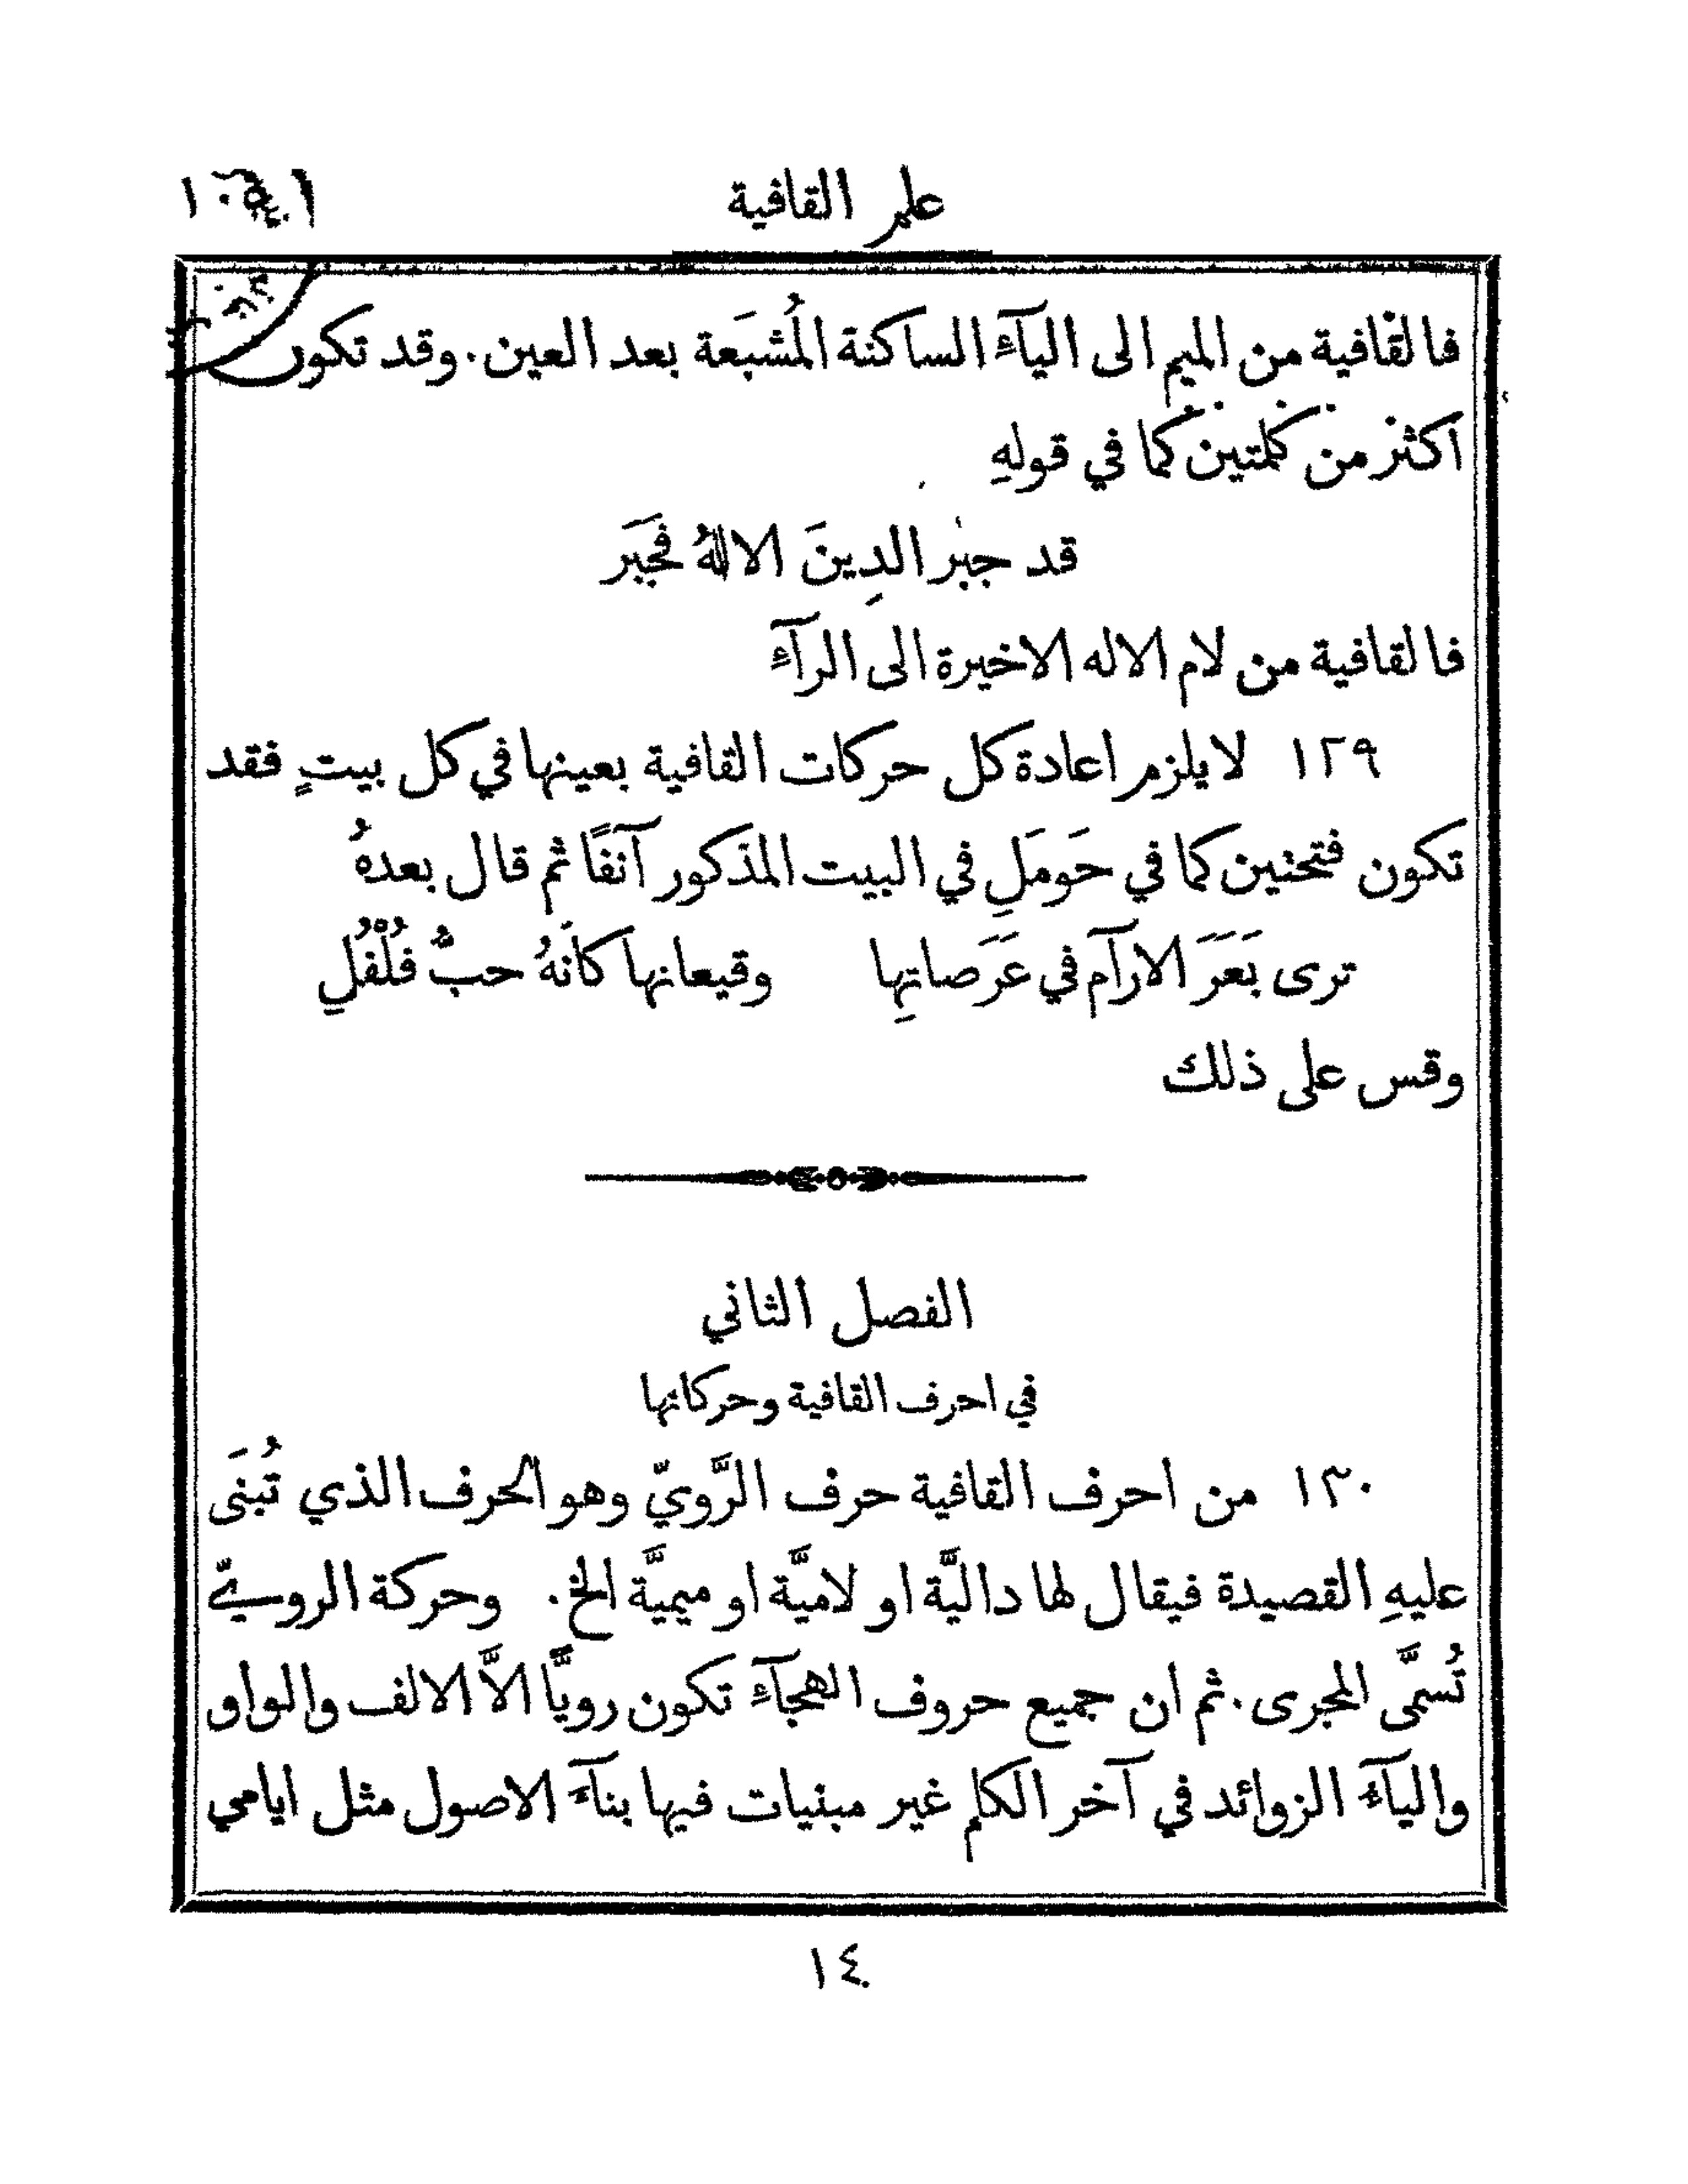 علم القافية ١٠٥
فالقافية من الميم الى اليآء الساكنة المُشبَعة بعد العين. وقد تكون
اكثر من كلمتين كما في قولهِ
قد جبر الدِينَ الالهُ فجَبَر
فالقافية من لام الاله الاخيرة الى الرآء
١٢٩ لا يلزم اعادة كل حركات القافية بعينها في كل بيتٍ فقد
تكون فتحتين كما في حَومَلِ في البيت المذكور آنفًا ثم قال بعدهُ
ترى بَعَرَ الارآم في عَرَصاتِها وقيعانها كأنهُ حبُّ فُلْفُلِ
وقس على ذلك
الفصل الثاني
في احرف القافية وحركاتها
١٣٠ من احرف القافية حرف الرَّويّ وهو الحرف الذي تُبنَى
عليهِ القصيدة فيقال لها داليَّة او لاميَّة او ميميَّة الخ. وحركة الرويّ
تُسمَّى المجرى. ثم ان جميع حروف الهجآء تكون رويًّا الاَّ الالف والواو
واليآء الزوائد في آخر الكلم غير مبنيات فيها بنآء الاصول مثل ايامي
١٤